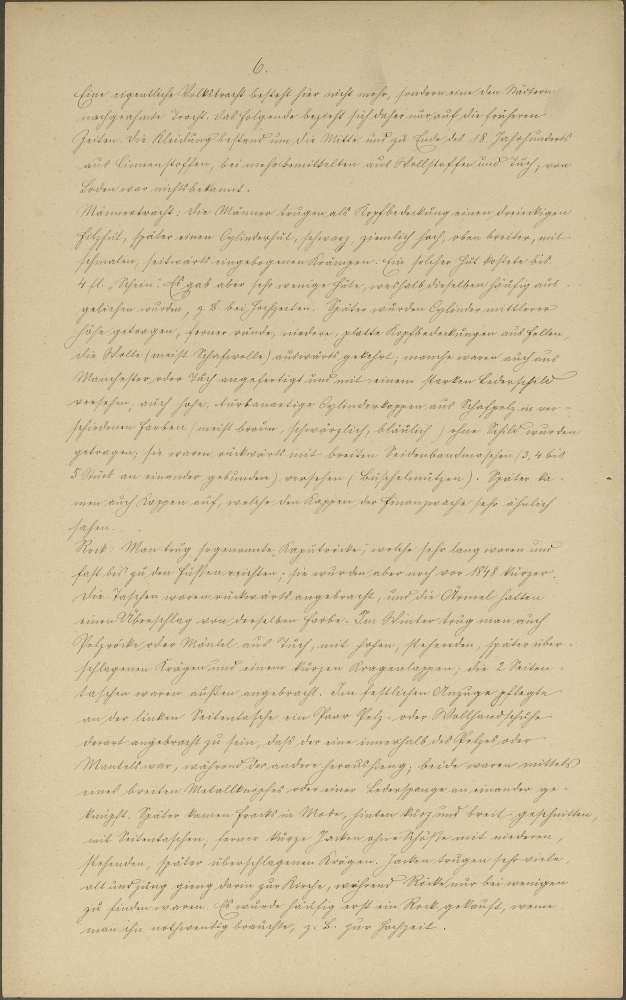 6.
Eine eigentliche Volkstracht besteht hier nicht mehr, sondern eine den Städtern
nachgeahmte Tracht. Das Folgende bezieht sich daher nur auf die früheren
Zeiten. Die Kleidung bestand um die Mitte und zu Ende des 18. Jahrhunderts
aus Linnenstoffen, bei mehr bemittelten aus Wollstoffen und Tuch, von
Loden war nichts bekannt.
Männertracht: Die Männer trugen als Kopfbedeckung einen dreieckigen
Filzhut, später einen Cylinderhut, schwarz, ziemlich hoch, oben breiter, mit
schmalen, seitwärts eingebogenen Krämpen. Ein solcher Hut kostete bis
4 fl. Schein. Es gab aber sehr wenige Hüte, weshalb dieselben häufig aus-
geliehen wurden, z. B. bei Hochzeiten. Später wurden Cylinder mittlerer
Höhe getragen, ferner runde, niedere, platte Kopfbedeckungen aus Fellen,
die Wolle (meist Schafwolle) auswärts gekehrt; manche waren auch aus
Manchester oder Tuch angefertigt und mit einem starken Lederschild
versehen, auch hohe, turbanartige Cylinderkappen aus Schafpelz in ver-
schiedenen Farben (meist braun, schwärzlich, bläulich) ohne Schild wurden
getragen; sie waren rückwärts mit breiten Seidenbandmaschen (3, 4 bis
5 Stück an einander gebunden) versehen (Buschelmützen). Später ka-
men auch Kappen auf, welche den Kappen der Finanzwache sehr ähnlich
sahen.
Rock: Man trug sogenannte Kaputröcke, welche sehr lang waren und
fast bis zu den Füßen reichten; sie wurden aber noch vor 1848 kürzer.
Die Taschen waren rückwärts angebracht, und die Ärmel hatten
einen Überschlag von derselben Farbe. Im Winter trug man auch
Pelzröcke oder Mäntel aus Tuch, mit hohen, stehenden, später über-
schlagenen Krägen und einem kurzen Kragenlappen; die 2 Seiten-
taschen waren außen angebracht. Im festlichen Anzuge pflegte
an der linken Seitentasche ein Paar Pelz- oder Wollhandschuhe
derart angebracht zu sein, daß der eine innerhalb des Pelzes oder
Mantels war, während der andere heraushieng; beide waren mittels
eines breiten Metallknopfes oder einer Lederspange an einander ge-
knüpft. Später kamen Fracks in Mode, hinten kurz und breit geschnitten,
mit Seitentaschen, ferner kurze Jacken ohne Schöße mit niederen,
stehenden, später überschlagenen Krägen. Jacken trugen sehr viele,
alt und jung gieng darin zur Kirche, während Röcke nur bei wenigen
zu finden waren. Es wurde häufig erst ein Rock gekauft, wenn
man ihn nothwendig brauchte, z. B. zur Hochzeit.